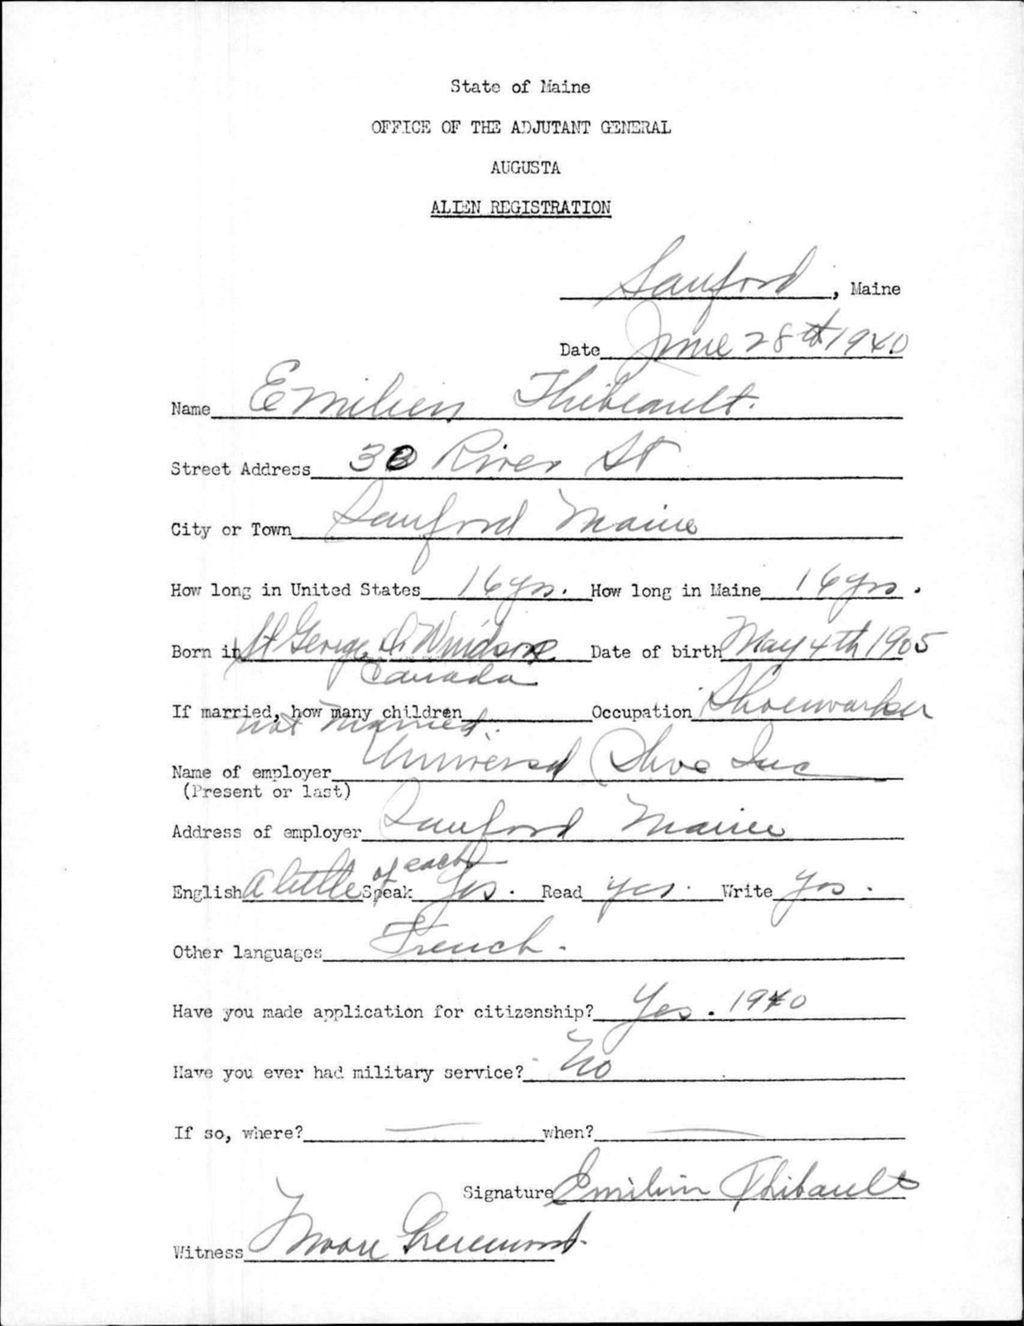 State of Maine
OFFICE OF THE ADJUTANT GENERAL
AUGUSTA
ALIEN REGISTRATION
Sanford, Maine
Date June 28th 1940
Name Emilien Thibeault.
Street Address 30 River St
City or Town Sanford Maine
How long in United States 16 yrs. How long in Maine 16 yrs.
Born in St George Windsor Date of birth May 4th 1905
Canada
If married, how many children Occupation Shoeworker
not Married.
Name of employer Universal Shoe Inc
(Present or last)
Address of employer Sanford Maine
of each
English A little Speak Yes. Read yes. Write Yes.
Other languages French.
Have you made application for citizenship? Yes. 1940
Have you ever had military service? No
If so, where? when?
Signature Emilien Thibault
Witness